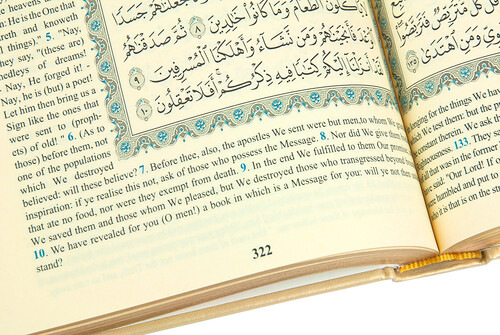 جَعَلْنَٰهُمْ جَسَدًا
يَأْكُلُونَ ٱلطَّعَامَ وَمَا كَانُوا۟ خَٰلِدِينَ ٨ ثُمَّ صَدَقْنَٰهُمُ
فَأَنجَيْنَٰهُمْ وَمَن نَّشَآءُ وَأَهْلَكْنَا ٱلْمُسْرِفِينَ ٩
أَنزَلْنَآ إِلَيْكُمْ كِتَٰبًا فِيهِ ذِكْرُكُمْ أَفَلَا تَعْقِلُونَ ١٠
وَمَنِ ٱهْتَدَىٰ ١٣٥
heavens
He is the One that
and know
things)." 5. "Nay,"
they say, "(these are)
medleys of dreams!
Nay, He forged it! -
Nay, he is (but) a poet!
Let him then bring us a
Sign like the ones that
were sent to (proph-
ets) of old!" 6. (As to
those) before them, not
one of the populations
which We destroyed
believed: will these believe? 7. Before thee, also, the apostles We sent were but men, to whom We
inspiration: if ye realise this not, ask of those who possess the Message. 8. Nor did We give them
that ate no food, nor were they exempt from death. 9. In the end We fulfilled to them Our
We saved them and those whom We pleased, but We destroyed those who transgressed beyond
10. We have revealed for you (O men!) a book in which is a Message for you: will ye not then
stand?
322
for the things We have
We test them: but the
constant therein. We ask
righteousness. 133. They say
all that was in the former
have said: "Our Lord! If
were humbled and put to
who it is that is on the